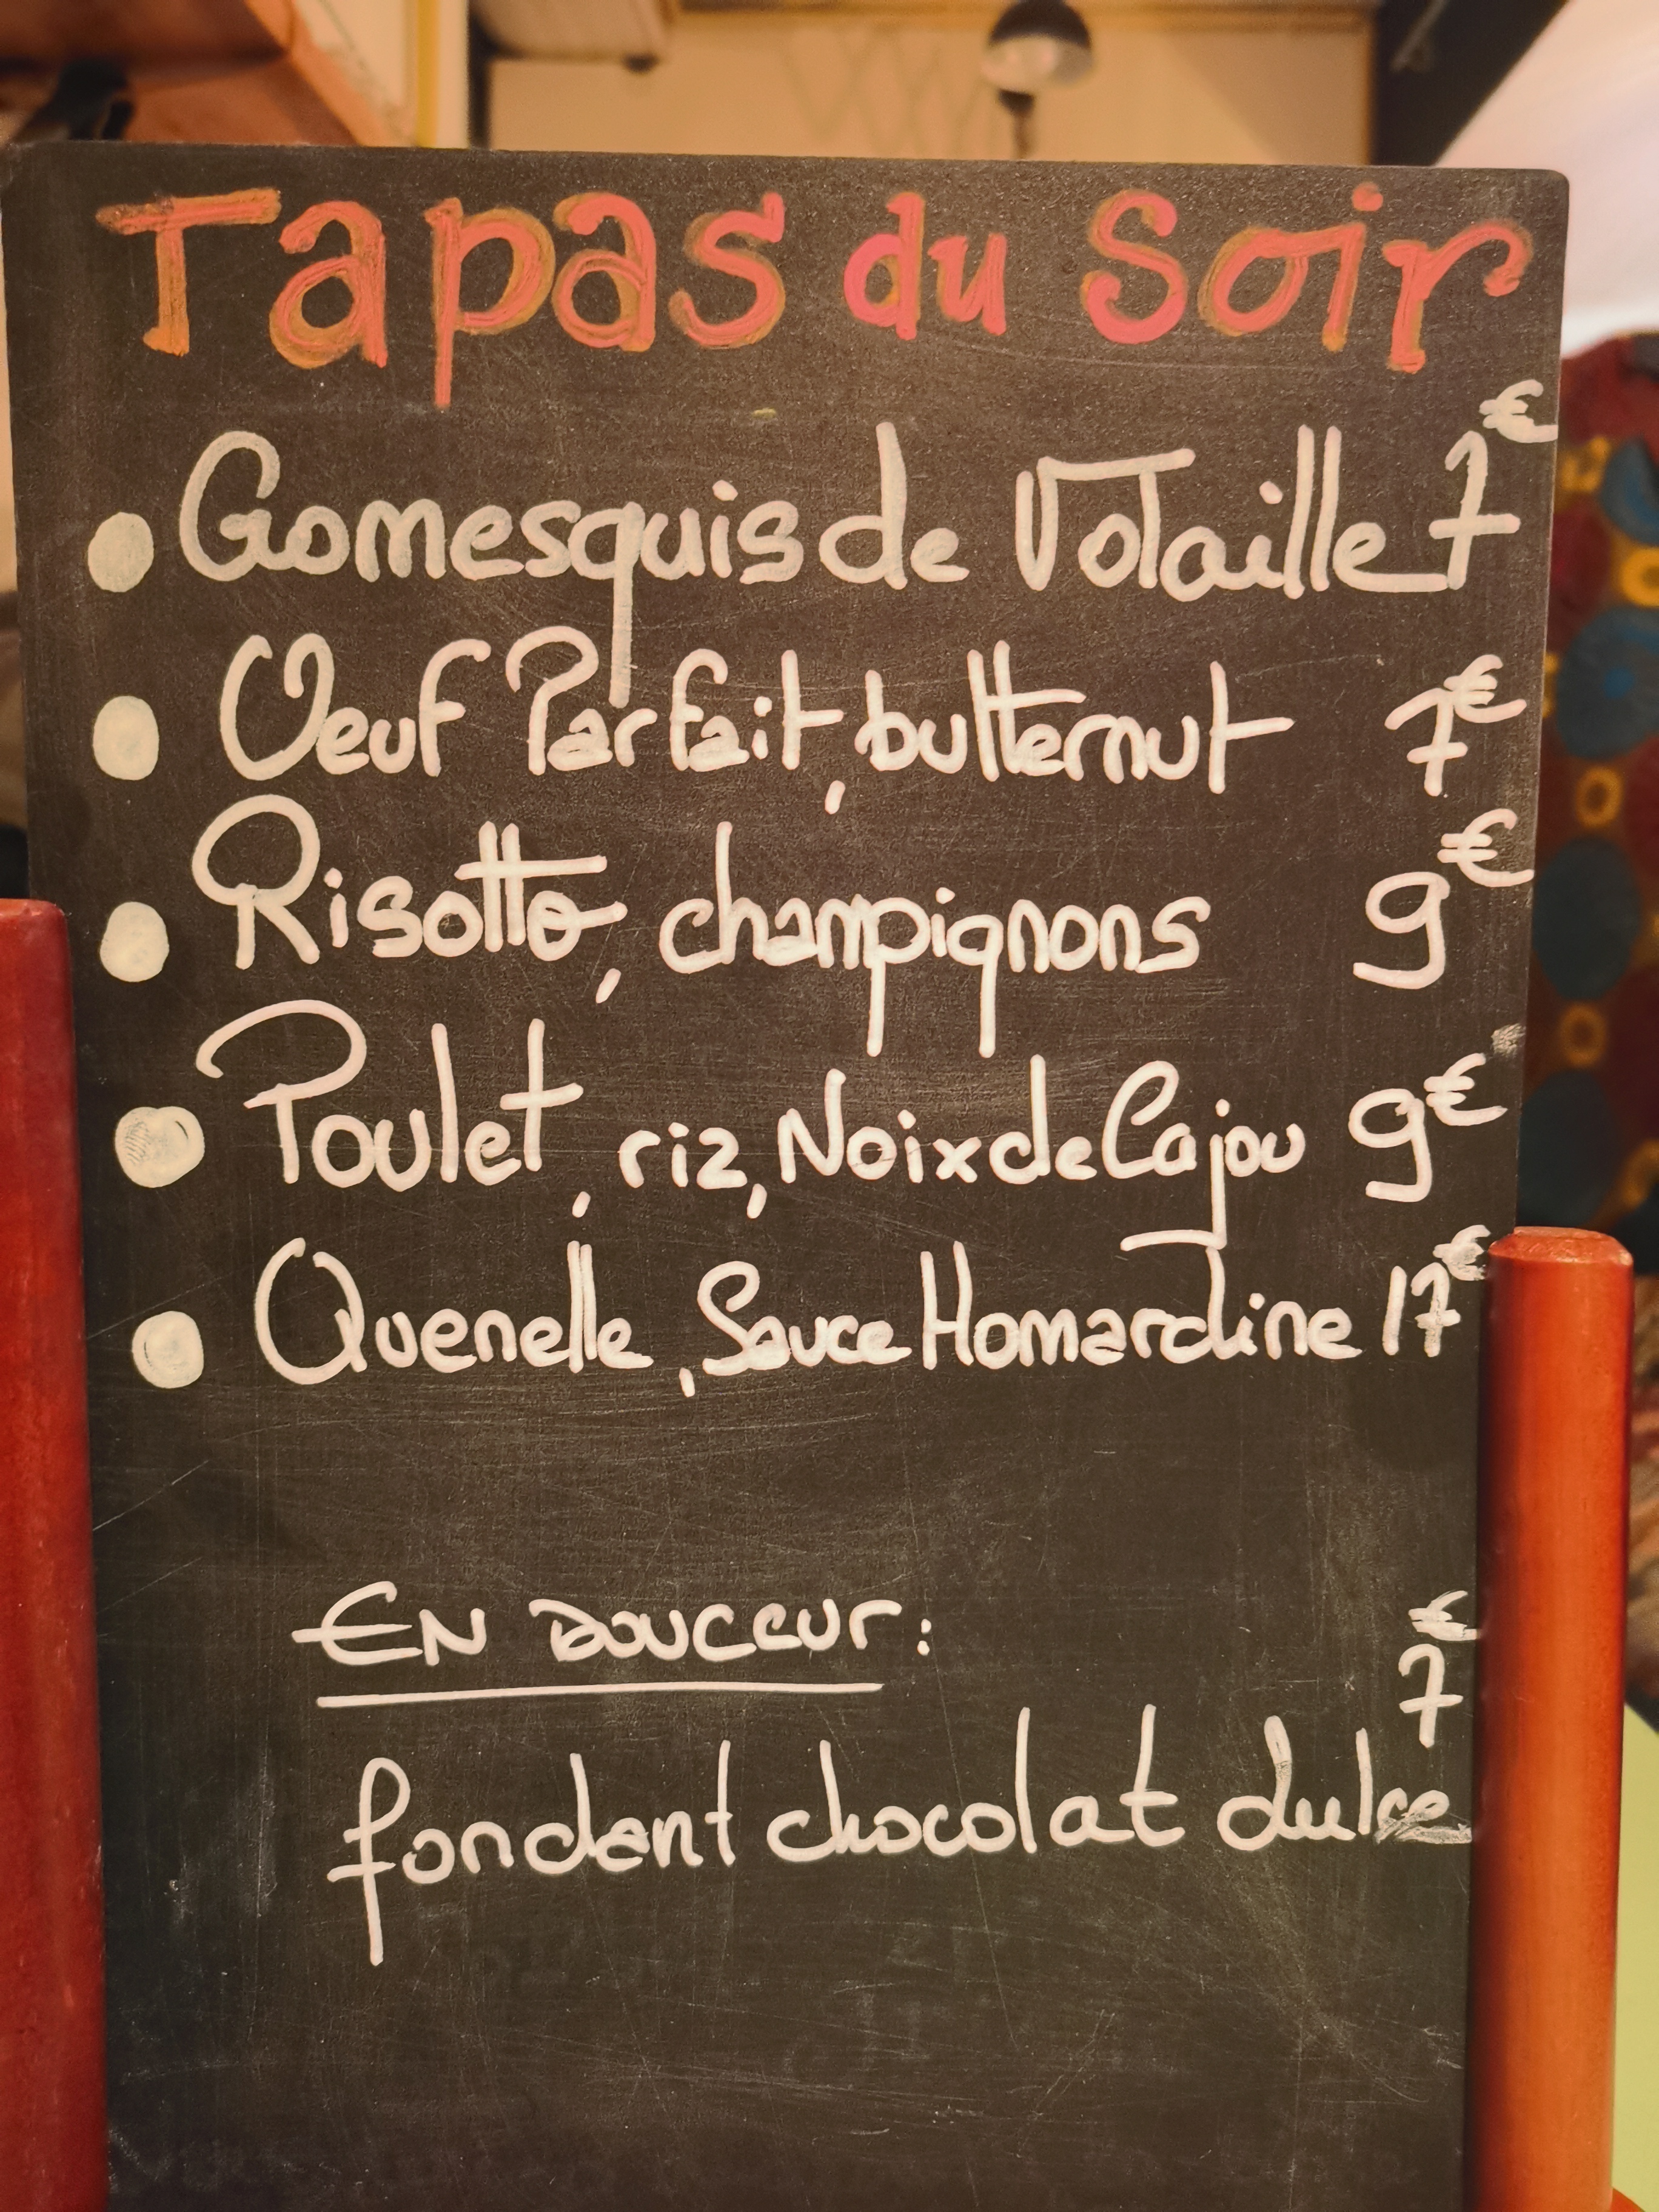 Tapas du Soir
Gomesquis de Volaille 7€
Oeuf Parfait, butternut 7€
Risotto, champignons 9€
Poulet, riz, Noix de Cajou 9€
Quenelle, Sauce Homardine 17€
EN DOUCEUR :
7€
fondant chocolat dulce